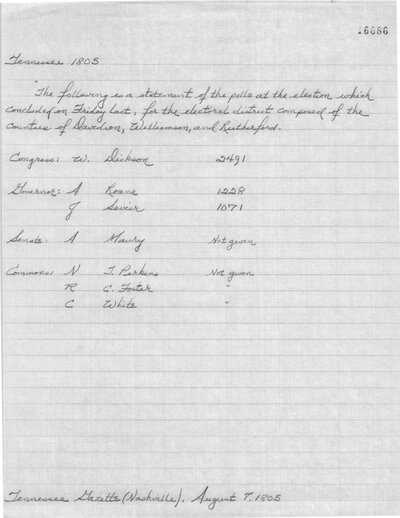 16686
Tennessee 1805
"The following is a statement of the polls at the election which
concluded on Friday last, for the electoral district composed of the
Counties of Davidson, Williamson, and Rutherford.
Congress: W. Dickson 2491
Governor: A Roane 1228
J Sevier 1071
Senate: A Maury Not given
Commons: N T. Perkins Not given
R C. Foster "
C White "
Tennessee Gazette (Nashville). August 7, 1805